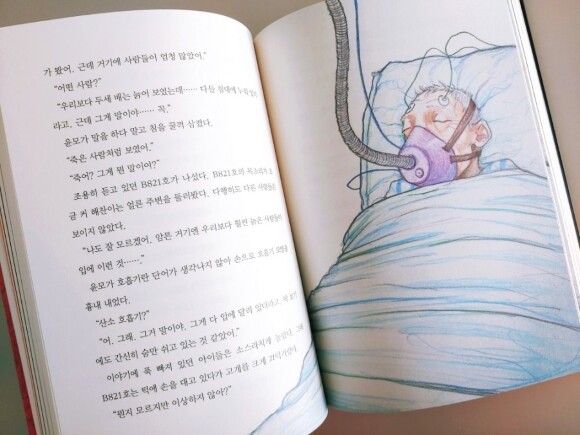 가 봤어. 근데 거기에 사람들이 엄청 많았어."
"어떤 사람?"
"우리보다 두세 배는 늙어 보였는데…… 다들 침대에 누워 있더
라고. 근데 그게 말이야…… 꼭."
윤모가 말을 하다 말고 침을 꿀꺽 삼켰다.
"죽은 사람처럼 보였어."
"죽어? 그게 뭔 말이야?"
조용히 듣고 있던 B821호가 나섰다. B821호의 목소리가
금 커 해찬이는 얼른 주변을 둘러봤다. 다행히도 다른 사람들은
보이지 않았다.
"나도 잘 모르겠어. 암튼 거기엔 우리보다 훨씬 늙은 사람들이
입에 이런 것……."
윤모가 호흡기란 단어가 생각나지 않아 손으로 호흡기 모양을
흉내 내었다.
"산소 호흡기?"
"어. 그래. 그거 말이야. 그게 다 입에 달려 있더라고.
에도 간신히 숨만 쉬고 있는 것 같았어."
이야기에 푹 빠져 있던 아이들은 소스라치게 놀랐다.
B821호는 턱에 손을 대고 있다가 고개를 크게 끄덕거렸다.
"뭔지 모르지만 이상하지 않아?"